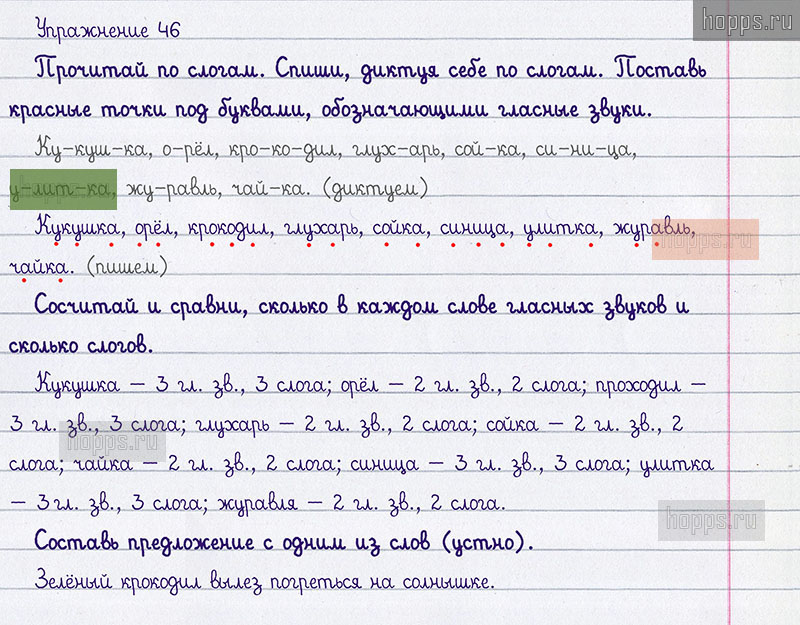 hopps.ru
Упражнение 46
Прочитай по слогам. Спиши, диктуя себе по слогам. Поставь
красные точки под буквами, обозначающими гласные звуки.
Ку-куш-ка, о-рёл, кро-ко-дил, глух-арь, сой-ка, си-ни-ца,
у-лит-ка, жу-равль, чай-ка. (диктуем)
Кукушка, орёл, крокодил, глухарь, сойка, синица, улитка, журавль,
hopps.ru
чайка. (пишем)
Сосчитай и сравни, сколько в каждом слове гласных звуков и
сколько слогов.
Кукушка – 3 гл. зв., 3 слога; орёл – 2 гл. зв., 2 слога; проходил –
3 гл. зв., 3 слога; глухарь – 2 гл. зв., 2 слога; сойка – 2 гл. зв., 2
hopps.ru
слога; чайка – 2 гл. зв., 2 слога; синица – 3 гл. зв., 3 слога; улитка
– 3 гл. зв., 3 слога; журавля – 2 гл. зв., 2 слога.
hopps.ru
Составь предложение с одним из слов (устно).
Зелёный крокодил вылез погреться на солнышке.